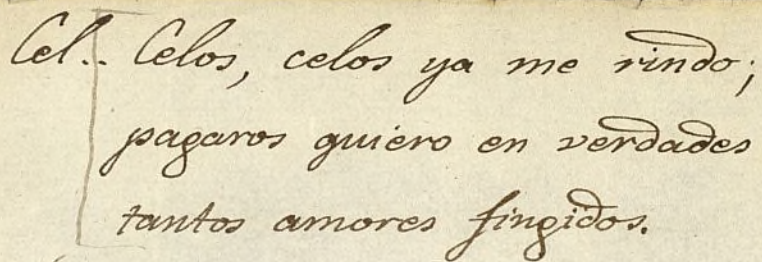 Cel.. Celos, celos ya me rindo;
pagaros quiero en verdades
tantos amores fingidos.